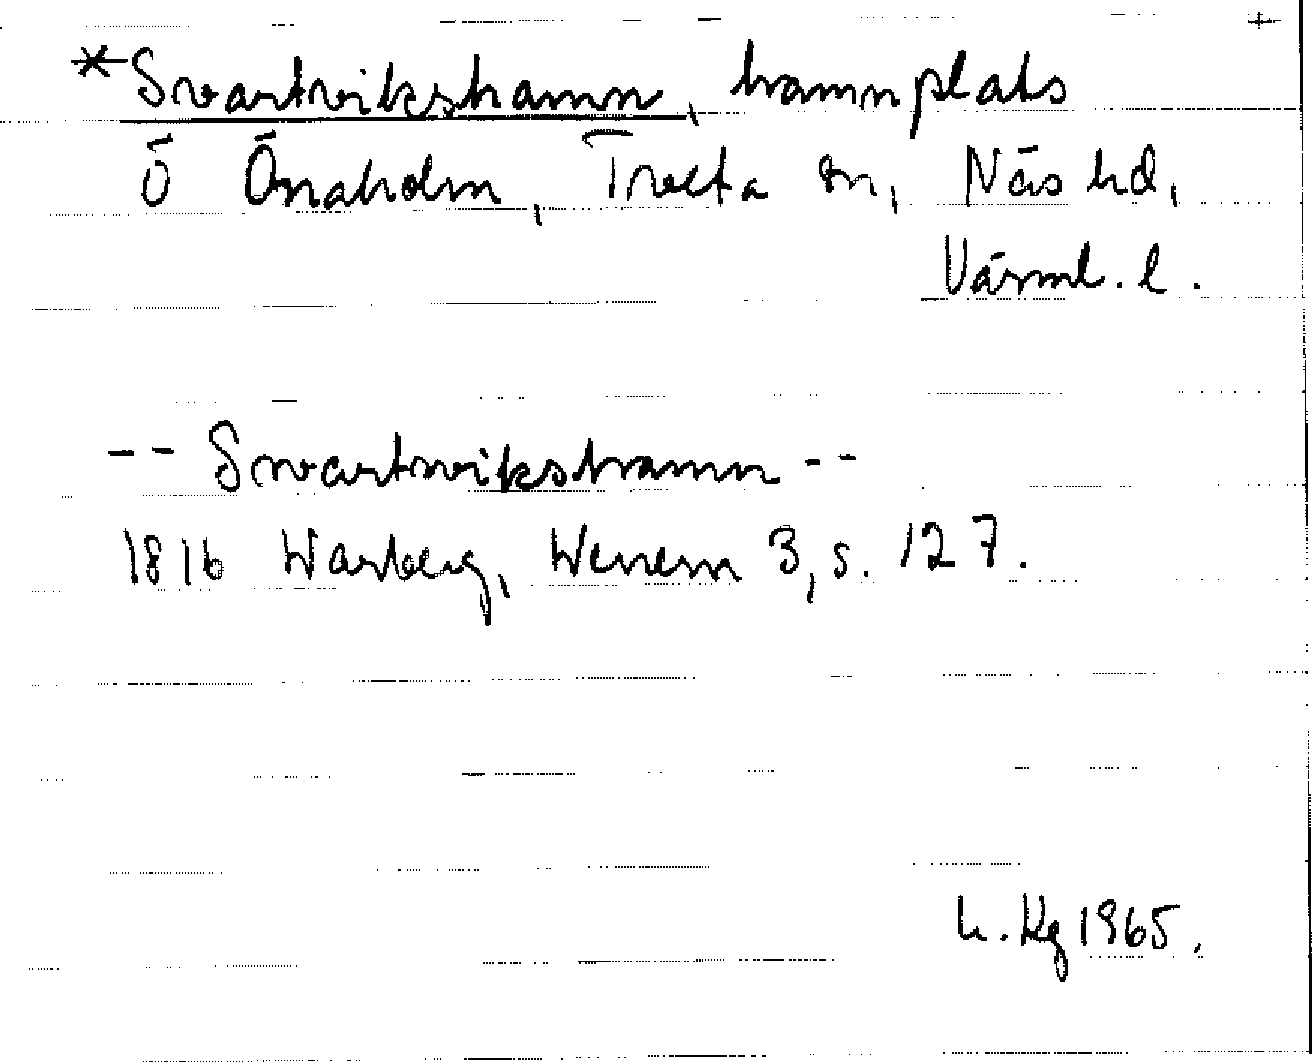 *Svartvikshamn, hamnplats
Ö Önaholm, Tveta sn, Näs hd,
Värml. l.
-- Svartvikshamn --
1816 Warberg, Wenern 3, s. 127.
L. Hg 1965.